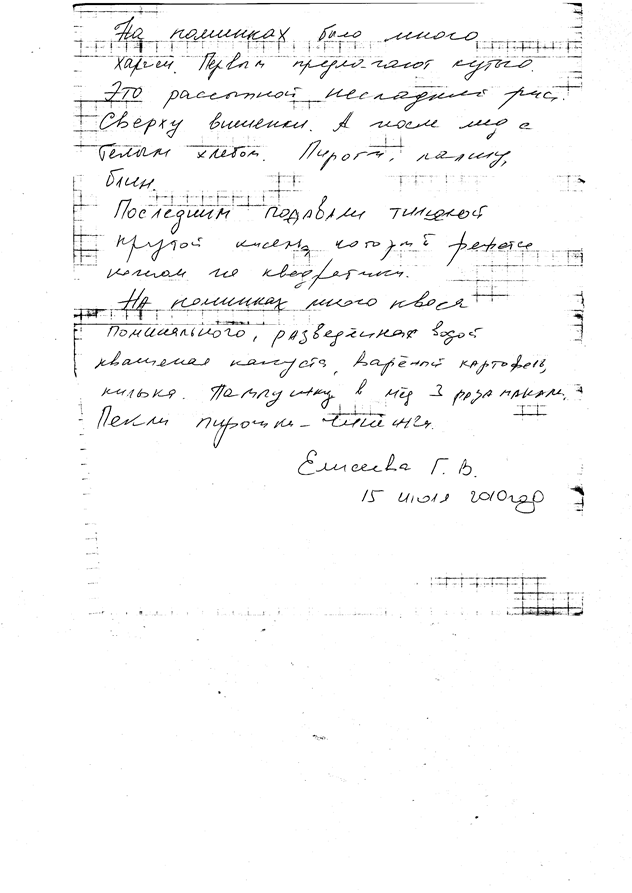 На поминках было много
харчей. Первым предлагают кутью.
Это рассыпной несладкий рис.
Сверху вишенки. А после мед с
белым хлебом. Пироги, лапшу,
блин.
Последним подавали
крутой кисель, который режется
ножом на квадратики.
На поминках много кваса
поминального, разведённая водой
квашеная капуста, варёный картофель,
килька. Пампушку в мёд 3 раза макали.
Пекли пирожки –
Елисеева Г. В.
15 июля 2010 год